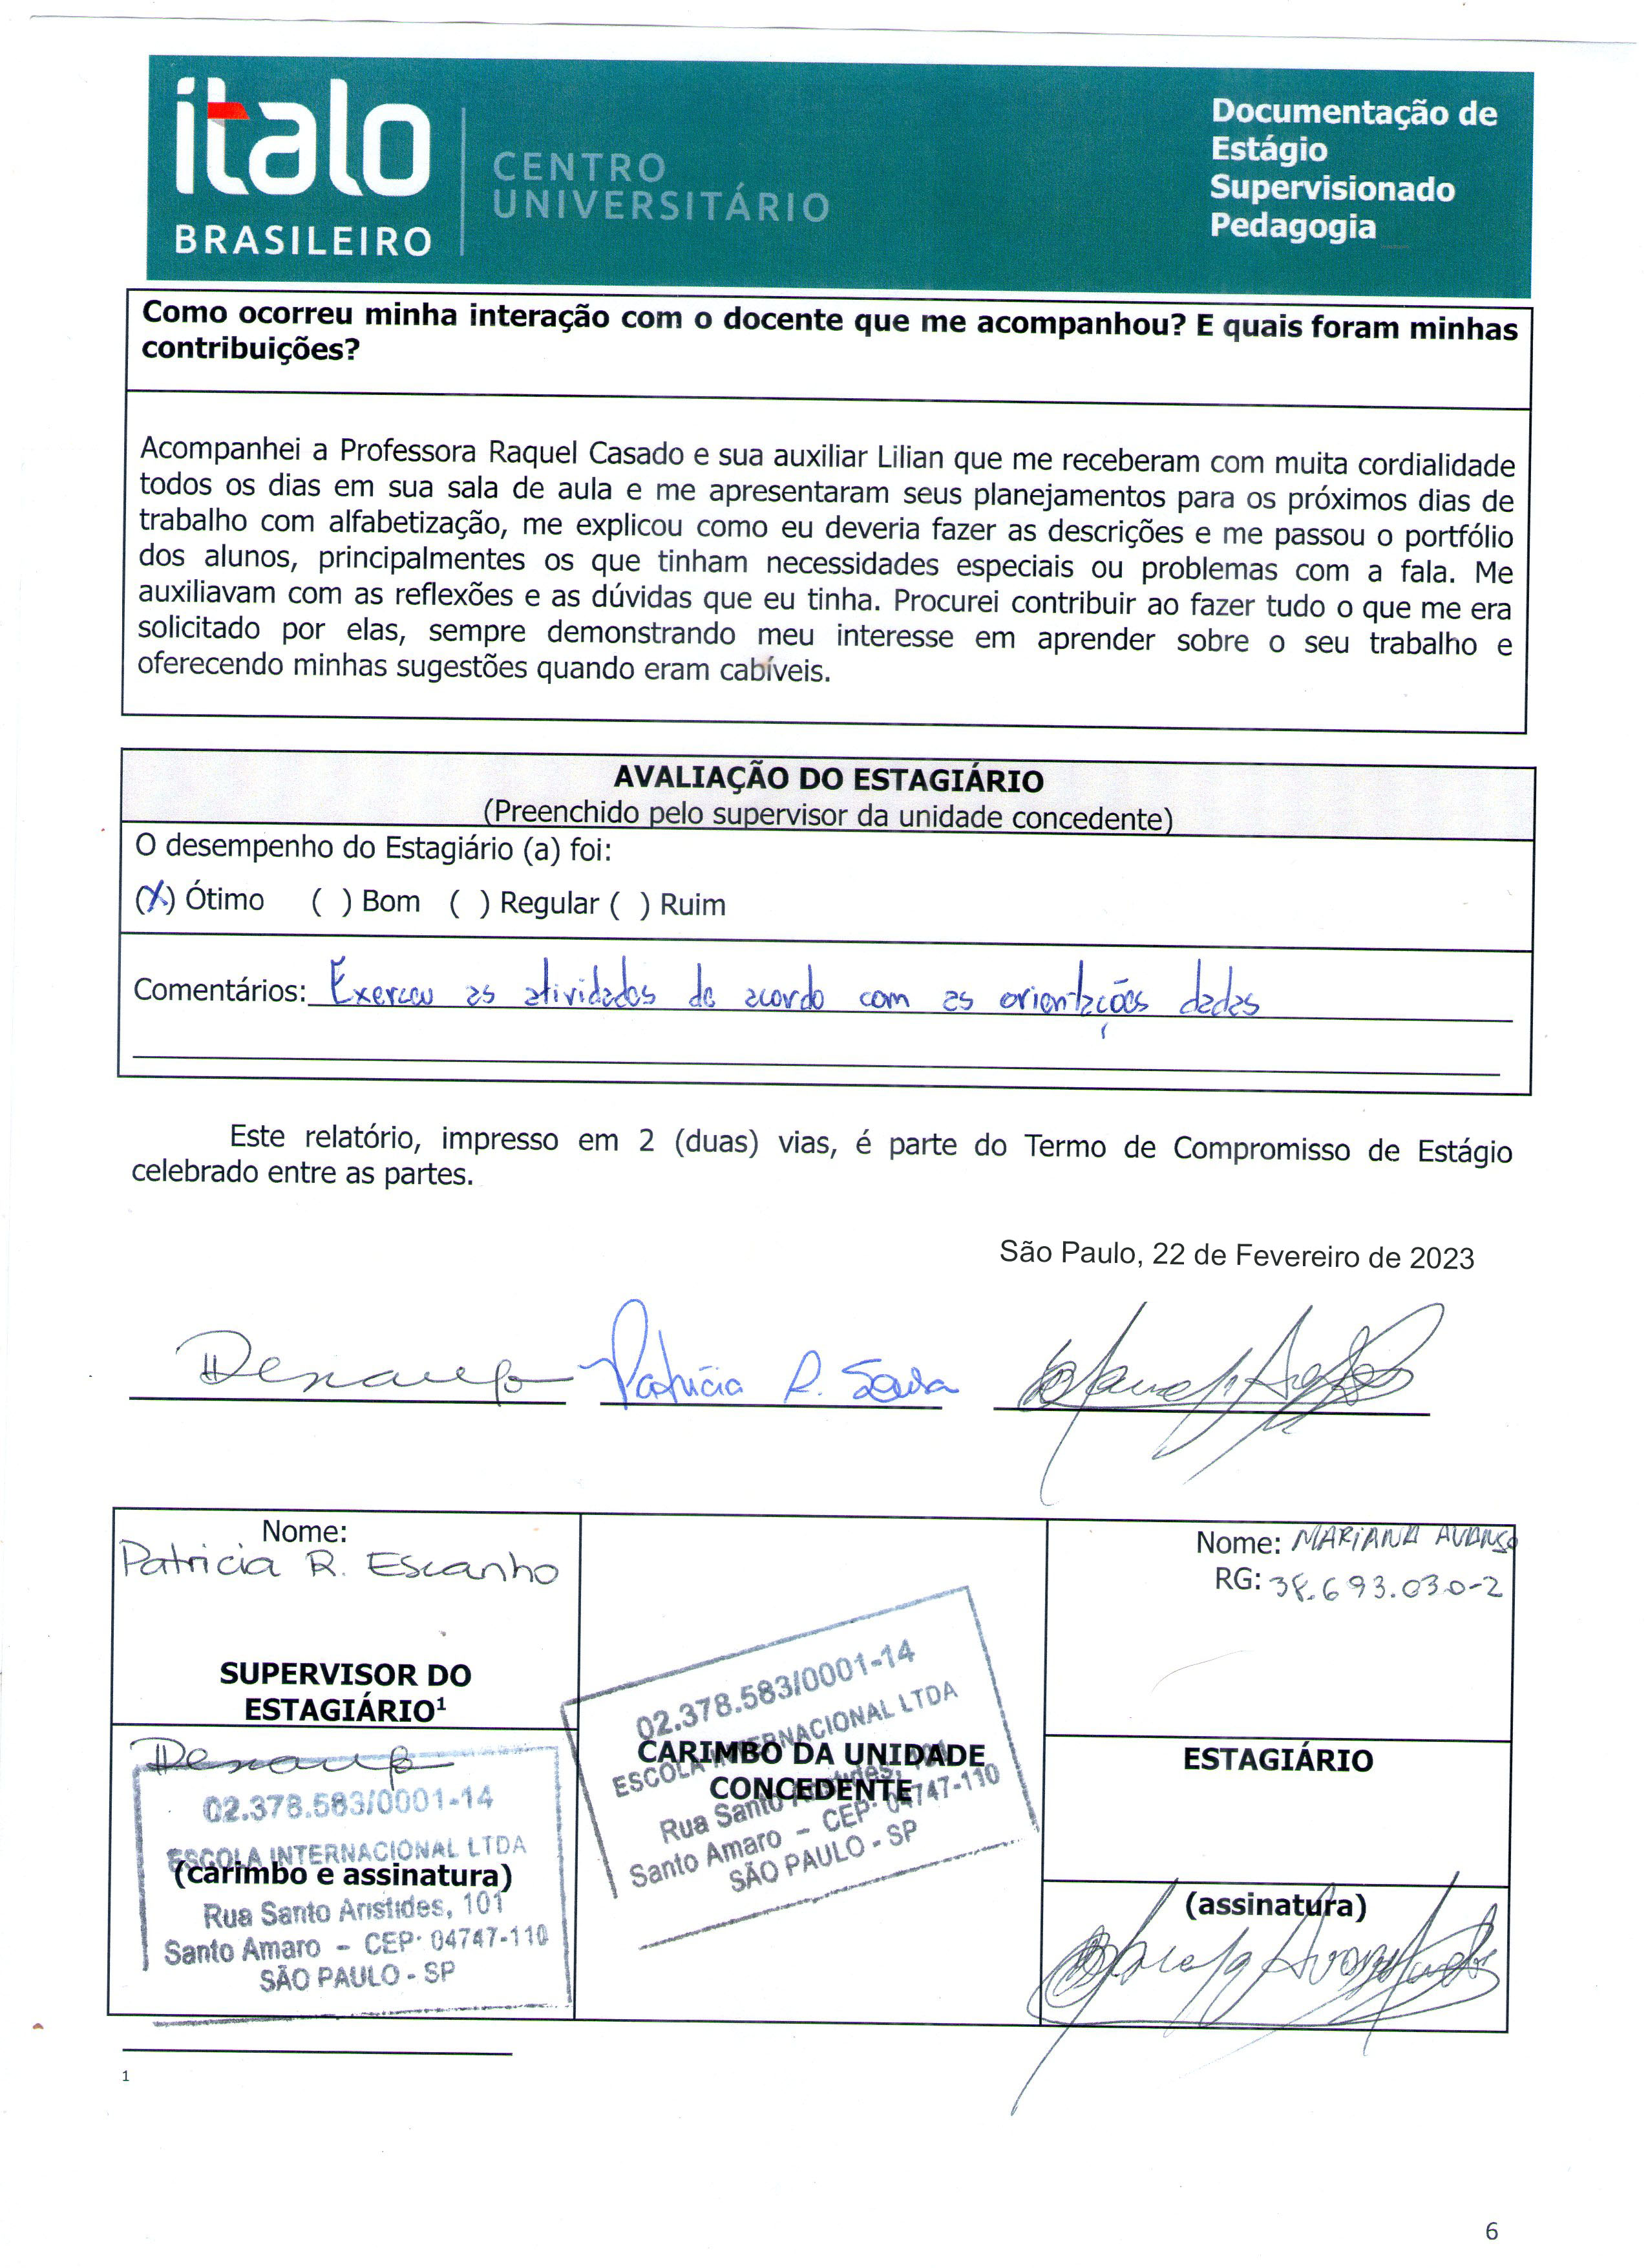 ítalo
BRASILEIRO
CENTRO
UNIVERSITÁRIO
Documentação de
Estágio
Supervisionado
Pedagogia
Como ocorreu minha interação com o docente que me acompanhou? E quais foram minhas
contribuições?
Acompanhei a Professora Raquel Casado e sua auxiliar Lilian que me receberam com muita cordialidade
todos os dias em sua sala de aula e me apresentaram seus planejamentos para os próximos dias de
trabalho com alfabetização, me explicou como eu deveria fazer as descrições e me passou o portfólio
dos alunos, principalmentes os que tinham necessidades especiais ou problemas com a fala. Me
auxiliavam com as reflexões e as dúvidas que eu tinha. Procurei contribuir ao fazer tudo o que me era
solicitado por elas, sempre demonstrando meu interesse em aprender sobre o seu trabalho e
oferecendo minhas sugestões quando eram cabíveis.
AVALIAÇÃO DO ESTAGIÁRIO
(Preenchido pelo supervisor da unidade concedente)
O desempenho do Estagiário (a) foi:
(X) Ótimo ( ) Bom ( ) Regular ( ) Ruim
Comentários: Exerceu as atividades de acordo com as orientações dadas
Este relatório, impresso em 2 (duas) vias, é parte do Termo de Compromisso de Estágio
celebrado entre as partes.
São Paulo, 22 de Fevereiro de 2023
Patrícia R.
Nome:
Patricia R. Escanho
SUPERVISOR DO
ESTAGIÁRIO¹
02.378.583/0001-14
ESCOLA INTERNACIONAL LTDA
(carimbo e assinatura)
Rua Santo Aristides, 101
Santo Amaro - CEP: 04747-110
SÃO PAULO - SP
02.378.583/0001-14
ESCOLA INTERNACIONAL LTDA
CARIMBO DA UNIDADE
CONCEDENTE
Rua Santo Aristides, 101
Santo Amaro - CEP: 04747-110
SÃO PAULO - SP
Nome: MARIANA AVANSO
RG: 38.693.030-2
ESTAGIÁRIO
(assinatura)
1
6